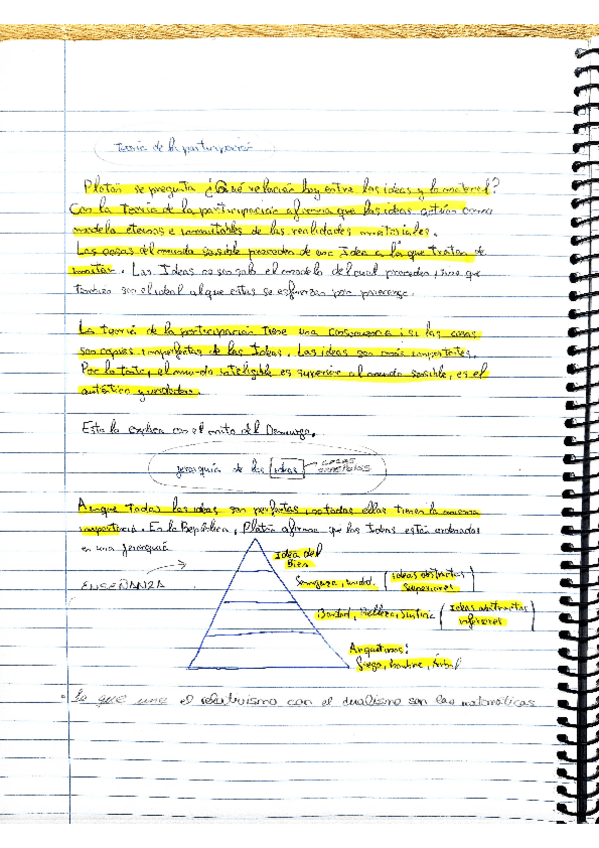 Teoría de la participación
Platón se pregunta ¿Qué relación hay entre las ideas y lo material?
Con la Teoría de la participación afirma que las ideas actúan como
modelo eternos e inmutables de las realidades materiales.
Las cosas del mundo sensible proceden de una Idea a la que tratan de
imitar. Las Ideas no son solo el modelo del cual proceden, sino que
también son el ideal al que estas se esfuerzan por
La teoría de la participación tiene una consecuencia: si las cosas
son copias imperfectas de las Ideas. Las ideas son más importantes.
Por lo tanto, el mundo inteligible es superior al mundo sensible, es el
auténtico y verdadero.
Esto lo explica con el mito del Demiurgo.
jerarquía de las ideas → COSAS
Aunque todas las ideas son perfectas, no todas ellas tienen la misma
importancia. En la República, Platón afirma que las Ideas están ordenadas
en una jerarquía
Idea del
Bien
ENSEÑANZA
Semejanza, unidad. (ideas abstractas
superiores)
Bondad, Belleza, Justicia (Ideas abstractas
inferiores)
Arquetipos:
fuego, hombre, Árbol
- lo que une el relativismo con el dualismo son las matemáticas